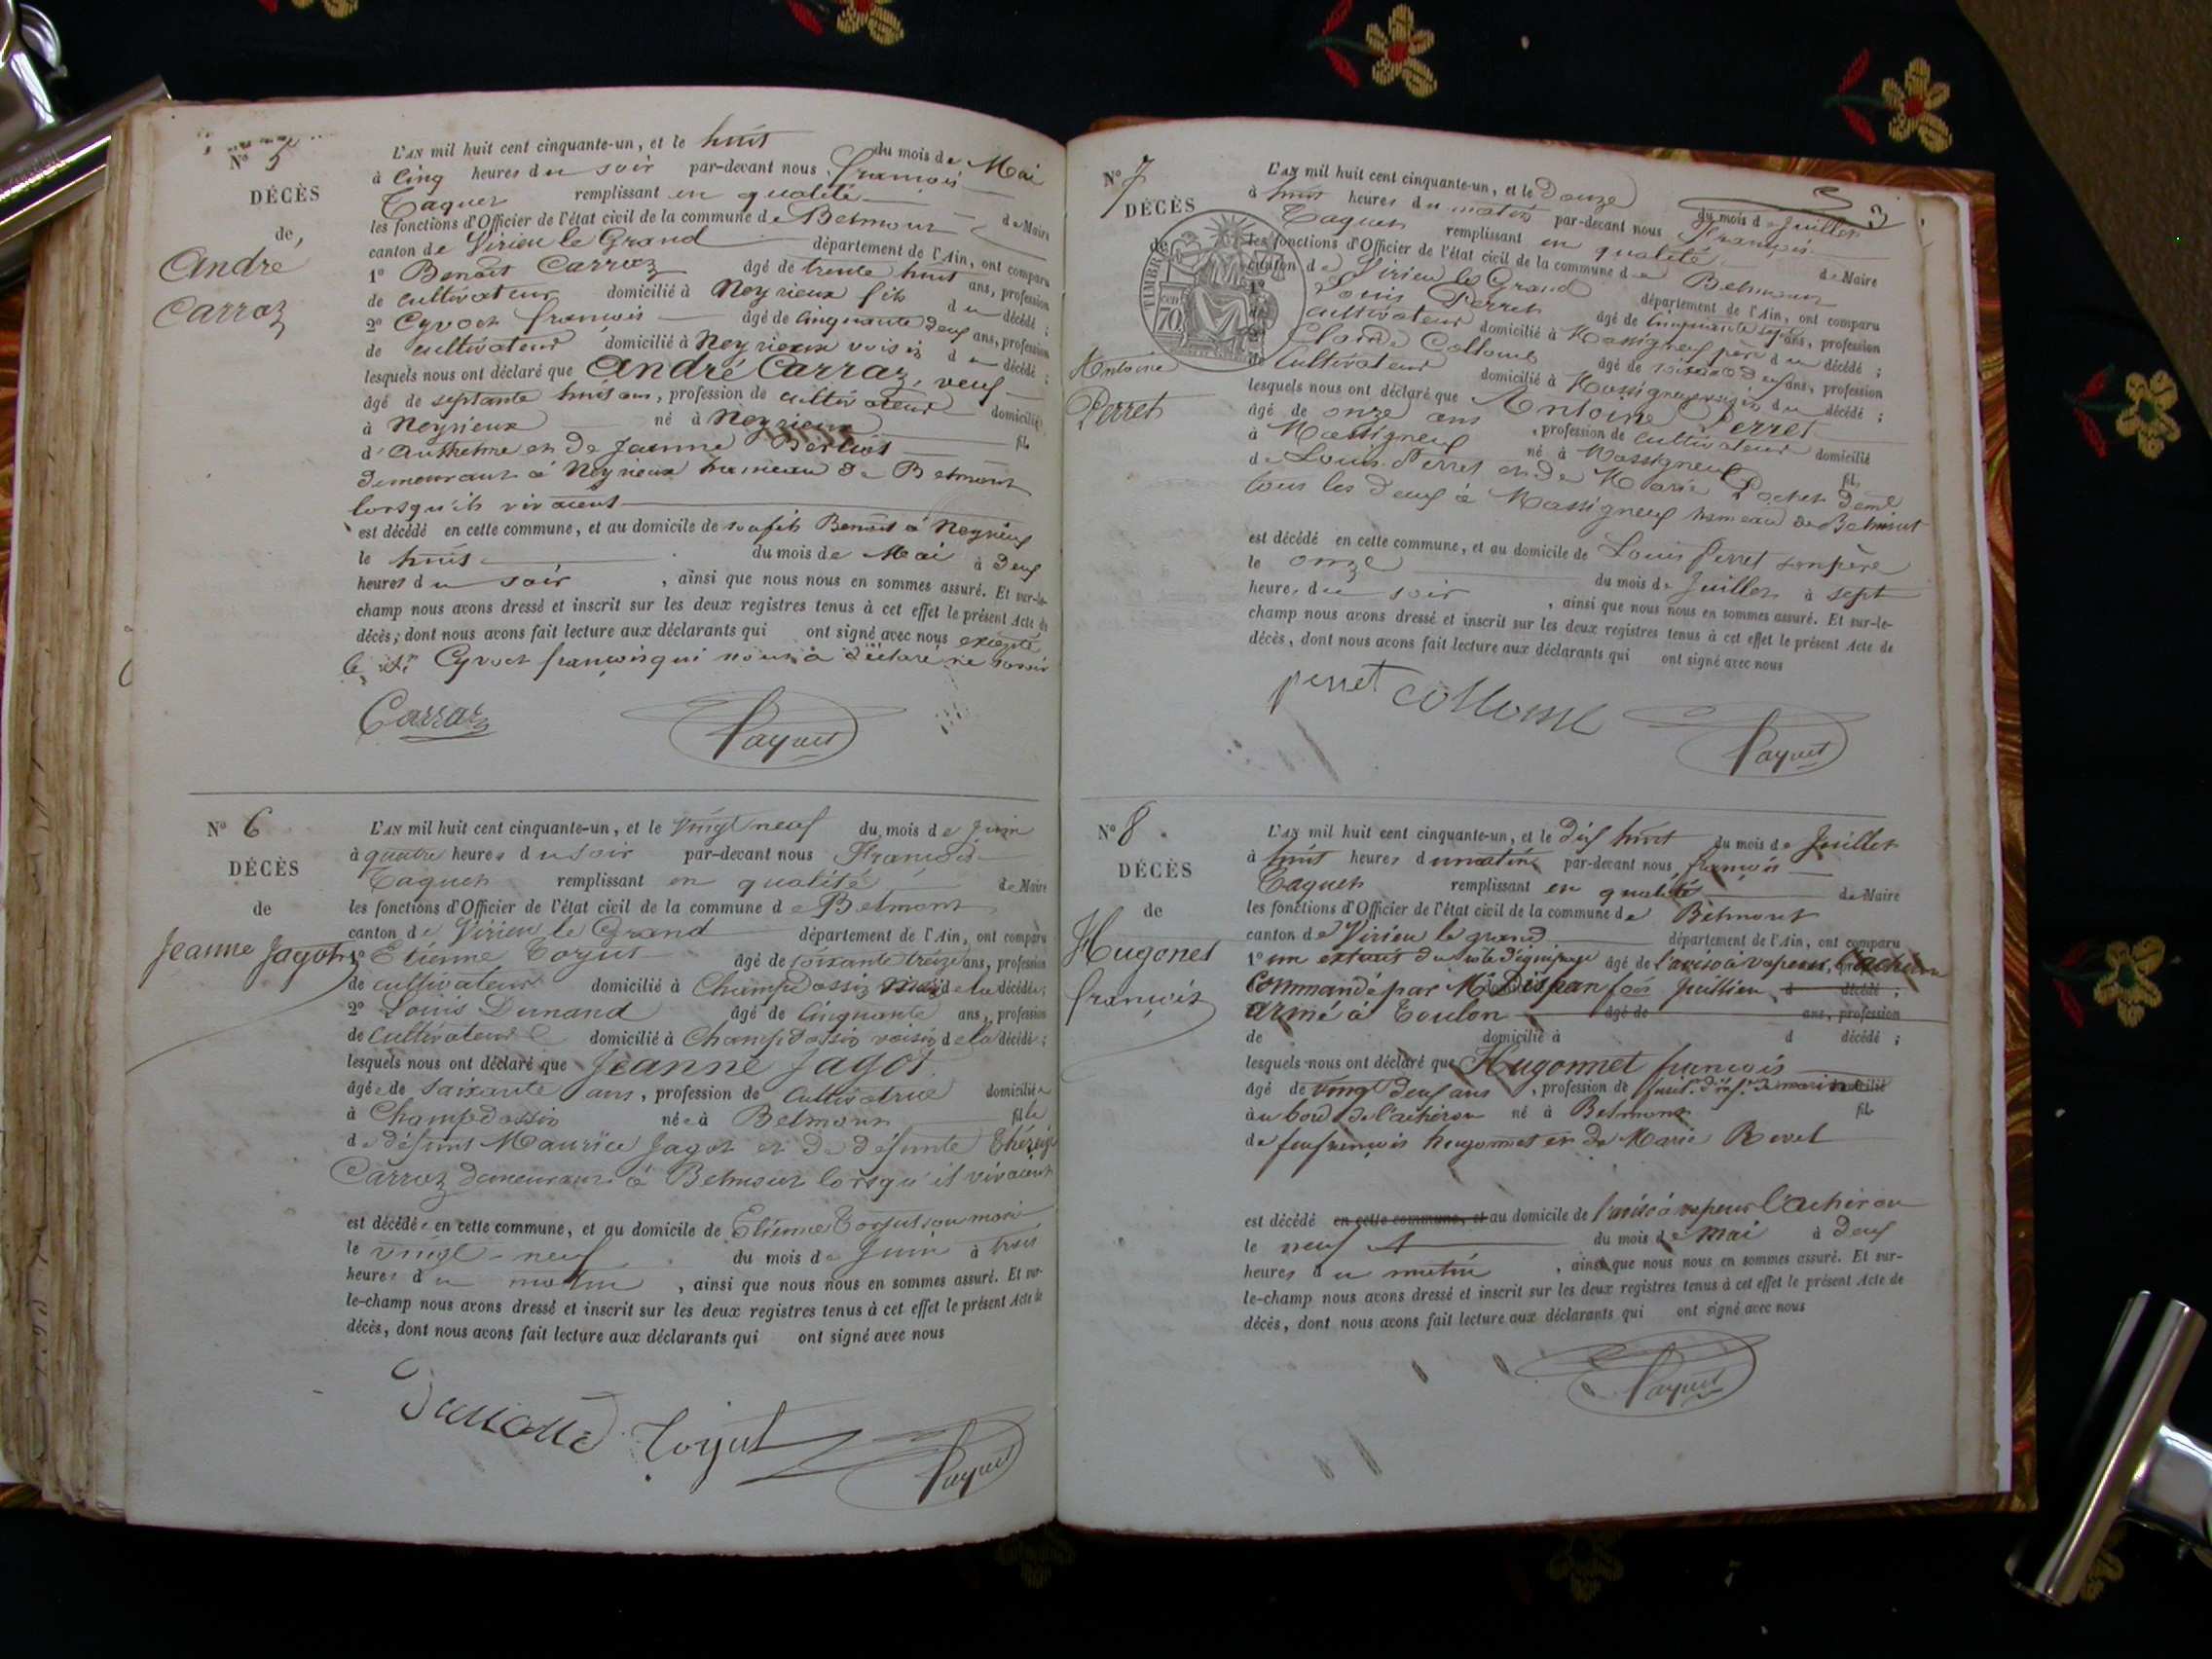 N° 5
DÉCÈS
de
André
Carraz
L'AN mil huit cent cinquante-un, et le huit du mois de Mai
à Cinq heures du soir par-devant nous françois
Paquet remplissant en qualité de Maire
les fonctions d'Officier de l'état civil de la commune de Belmont
canton de Virieu le Grand département de l'Ain, ont comparu
1° Benoit Carraz âgé de trente huit ans, profession
de cultivateur domicilié à Neyrieux fils du décédé ;
2° Cyvoct françois âgé de Cinquante deux ans, profession
de cultivateur domicilié à Neyrieux voisin du décédé ;
lesquels nous ont déclaré que André Carraz, veuf
âgé de septante huit ans, profession de cultivateur domicilié
à Neyrieux né à Neyrieux fils
d'Anthelme et de Jeanne Berliot
demeurant à Neyrieux hameau de Belmont
lorsqu'ils vivaient
est décédé en cette commune, et au domicile de son fils Benoit à Neyrieux
le huit du mois de Mai à deux
heures du soir , ainsi que nous nous en sommes assuré. Et sur-le-
champ nous avons dressé et inscrit sur les deux registres tenus à cet effet le présent Acte de
décès ; dont nous avons fait lecture aux déclarants qui ont signé avec nous excepté
le Sr Cyvoct françois qui nous a déclaré ne savoir
Carraz
Paquet
N° 6
DÉCÈS
de
Jeanne Jagot
L'AN mil huit cent cinquante-un, et le vingt neuf du mois de Juin
à quatre heures du soir par-devant nous François
Paquet remplissant en qualité de Maire
les fonctions d'Officier de l'état civil de la commune de Belmont
canton de Virieu le Grand département de l'Ain, ont comparu
1° Etienne Torjut âgé de soixante treize ans, profession
de cultivateur domicilié à Champdossin mari de la décédée ;
2° Louis Dumand âgé de Cinquante ans, profession
de Cultivateur domicilié à Champdossin voisin de la décédé ;
lesquels nous ont déclaré que Jeanne Jagot
âgée de Soixante ans, profession de Cultivatrice domiciliée
à Champdossin née à Belmont fille
de défunt Maurice Jagot et de défunte Thérèze
Carraz demeurant à Belmont lorsqu'il vivaient
est décédée en cette commune, et au domicile de Etienne Torjut son mari
le vingt-neuf du mois de Juin à trois
heures du matin , ainsi que nous nous en sommes assuré. Et sur-
le-champ nous avons dressé et inscrit sur les deux registres tenus à cet effet le présent Acte de
décès, dont nous avons fait lecture aux déclarants qui ont signé avec nous
Torjut
Paquet
N° 7
DÉCÈS
de
TIMBRE
70
Antoine
Perret
3
L'AN mil huit cent cinquante-un, et le Douze du mois de Juillet
à huit heures du matin par-devant nous François
Paquet remplissant en qualité de Maire
les fonctions d'Officier de l'état civil de la commune de Belmont
canton de Virieu le Grand département de l'Ain, ont comparu
1° Louis Perret âgé de Cinquante sept ans, profession
de cultivateur domicilié à Massigneux père du décédé ;
2° Claude Collomb âgé de ans, profession
de cultivateur domicilié à Massigneux voisin du décédé ;
lesquels nous ont déclaré que Antoine Perret
âgé de onze ans , profession de cultivateur domicilié
à Massigneux né à Massigneux fils
de Louis Perret et de Marie Pochet demt
tous les deux à Massigneux hameau de Belmont
est décédé en cette commune, et au domicile de Louis Perret son père
le onze du mois de Juillet à sept
heures du soir , ainsi que nous nous en sommes assuré. Et sur-le-
champ nous avons dressé et inscrit sur les deux registres tenus à cet effet le présent Acte de
décès, dont nous avons fait lecture aux déclarants qui ont signé avec nous
perret Collomb
Paquet
N° 8
DÉCÈS
de
Hugonet
françois
L'AN mil huit cent cinquante-un, et le dix huit du mois de Juillet
à huit heures du matin par-devant nous françois
Paquet remplissant en qualité de Maire
les fonctions d'Officier de l'état civil de la commune de Belmont
canton de Virieu le grand département de l'Ain, ont comparu
1° un extrait du rôle d'équipage âgé de l'aviso à vapeur, l'achéron
Commandé par Mr Dispan domicilié Jullien, d décédé ;
armé à Toulon âgé de ans, profession
de domicilié à d décédé ;
lesquels nous ont déclaré que Hugonnet françois
âgé de vingt deux ans , profession de fusil. d'inf. de marine domicilié
à au bord de l'achéron né à Belmont fils
de feu françois hugonnet et de Marie Revel
est décédé en cette commune, et au domicile de l'aviso à vapeur l'achéron
le neuf du mois de mai à deux
heures du matin , ainsi que nous nous en sommes assuré. Et sur-
le-champ nous avons dressé et inscrit sur les deux registres tenus à cet effet le présent Acte de
décès, dont nous avons fait lecture aux déclarants qui ont signé avec nous
Paquet